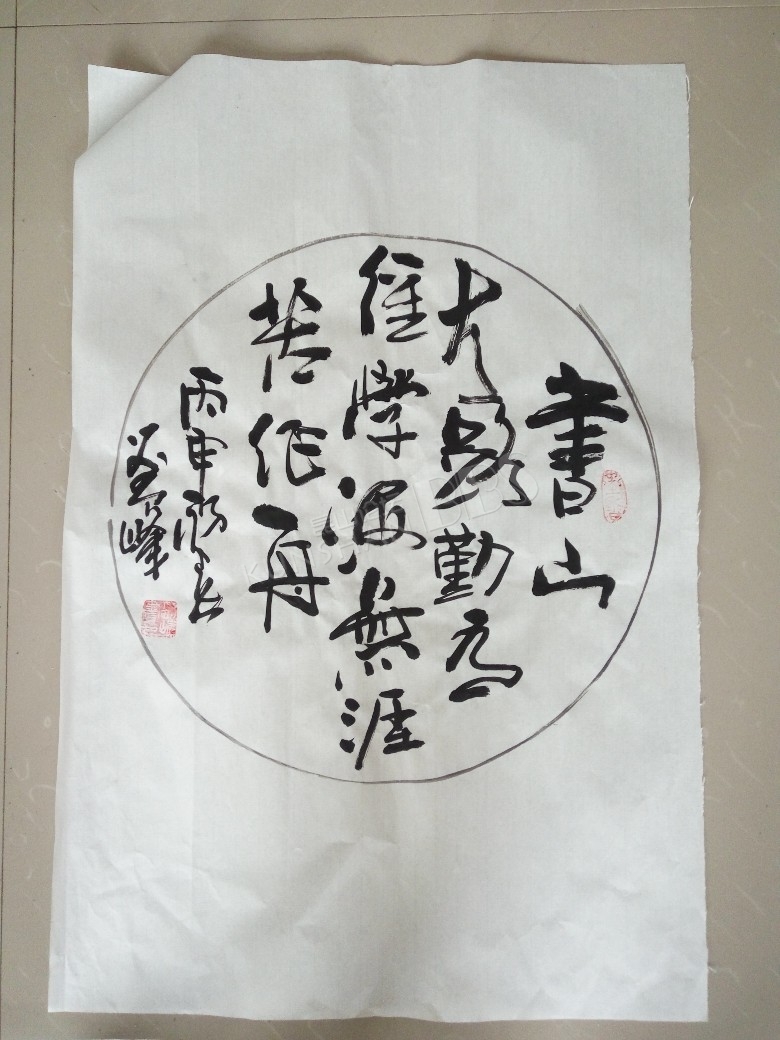 書山
有路勤为
徑學海無涯
苦作舟
丙申
峰